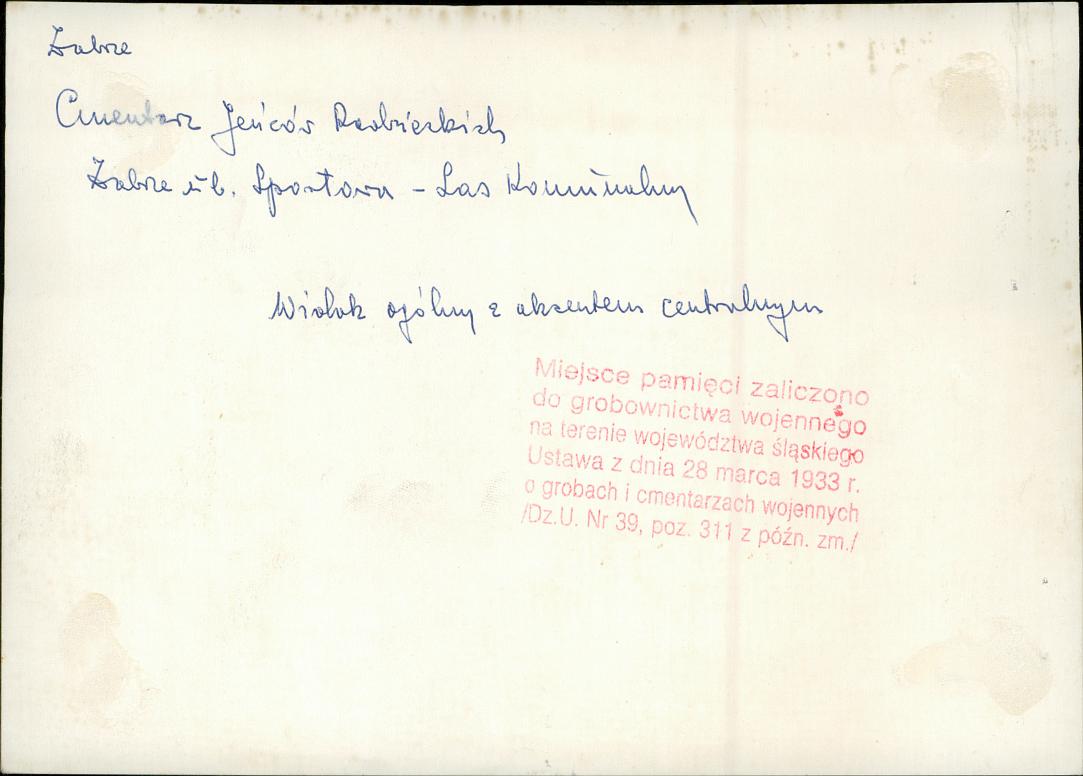 Zabrze
Cmentarz Jeńców Radzieckich
Zabrze ul. Sportowa - Las Komunalny
Widok ogólny z akcentem centralnym
Miejsce pamięci zaliczono
do grobownictwa wojennego
na terenie województwa śląskiego
Ustawa z dnia 28 marca 1933 r.
o grobach i cmentarzach wojennych
/Dz.U. Nr 39, poz. 311 z późn. zm./